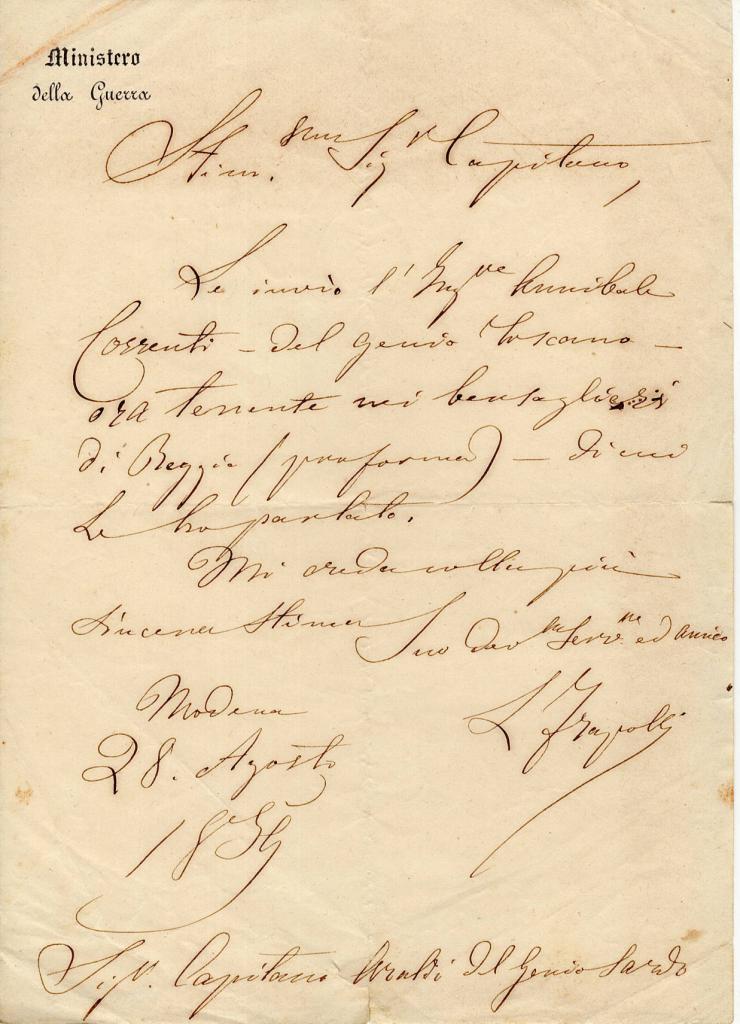 Ministero
della Guerra
Stim.mo Sigr Capitano,
Le invio l'Ingre Annibale
Correnti – del genio toscano –
ora tenente nei bersaglieri
di Reggio (proforma) – di cui
Le ho parlato.
Mi creda colla più
sincera stima Suo dev.mo Serv.re ed amico
Modena
L Frapolli
28. Agosto
1859
Sigr. Capitano Araldi del Genio Sardo